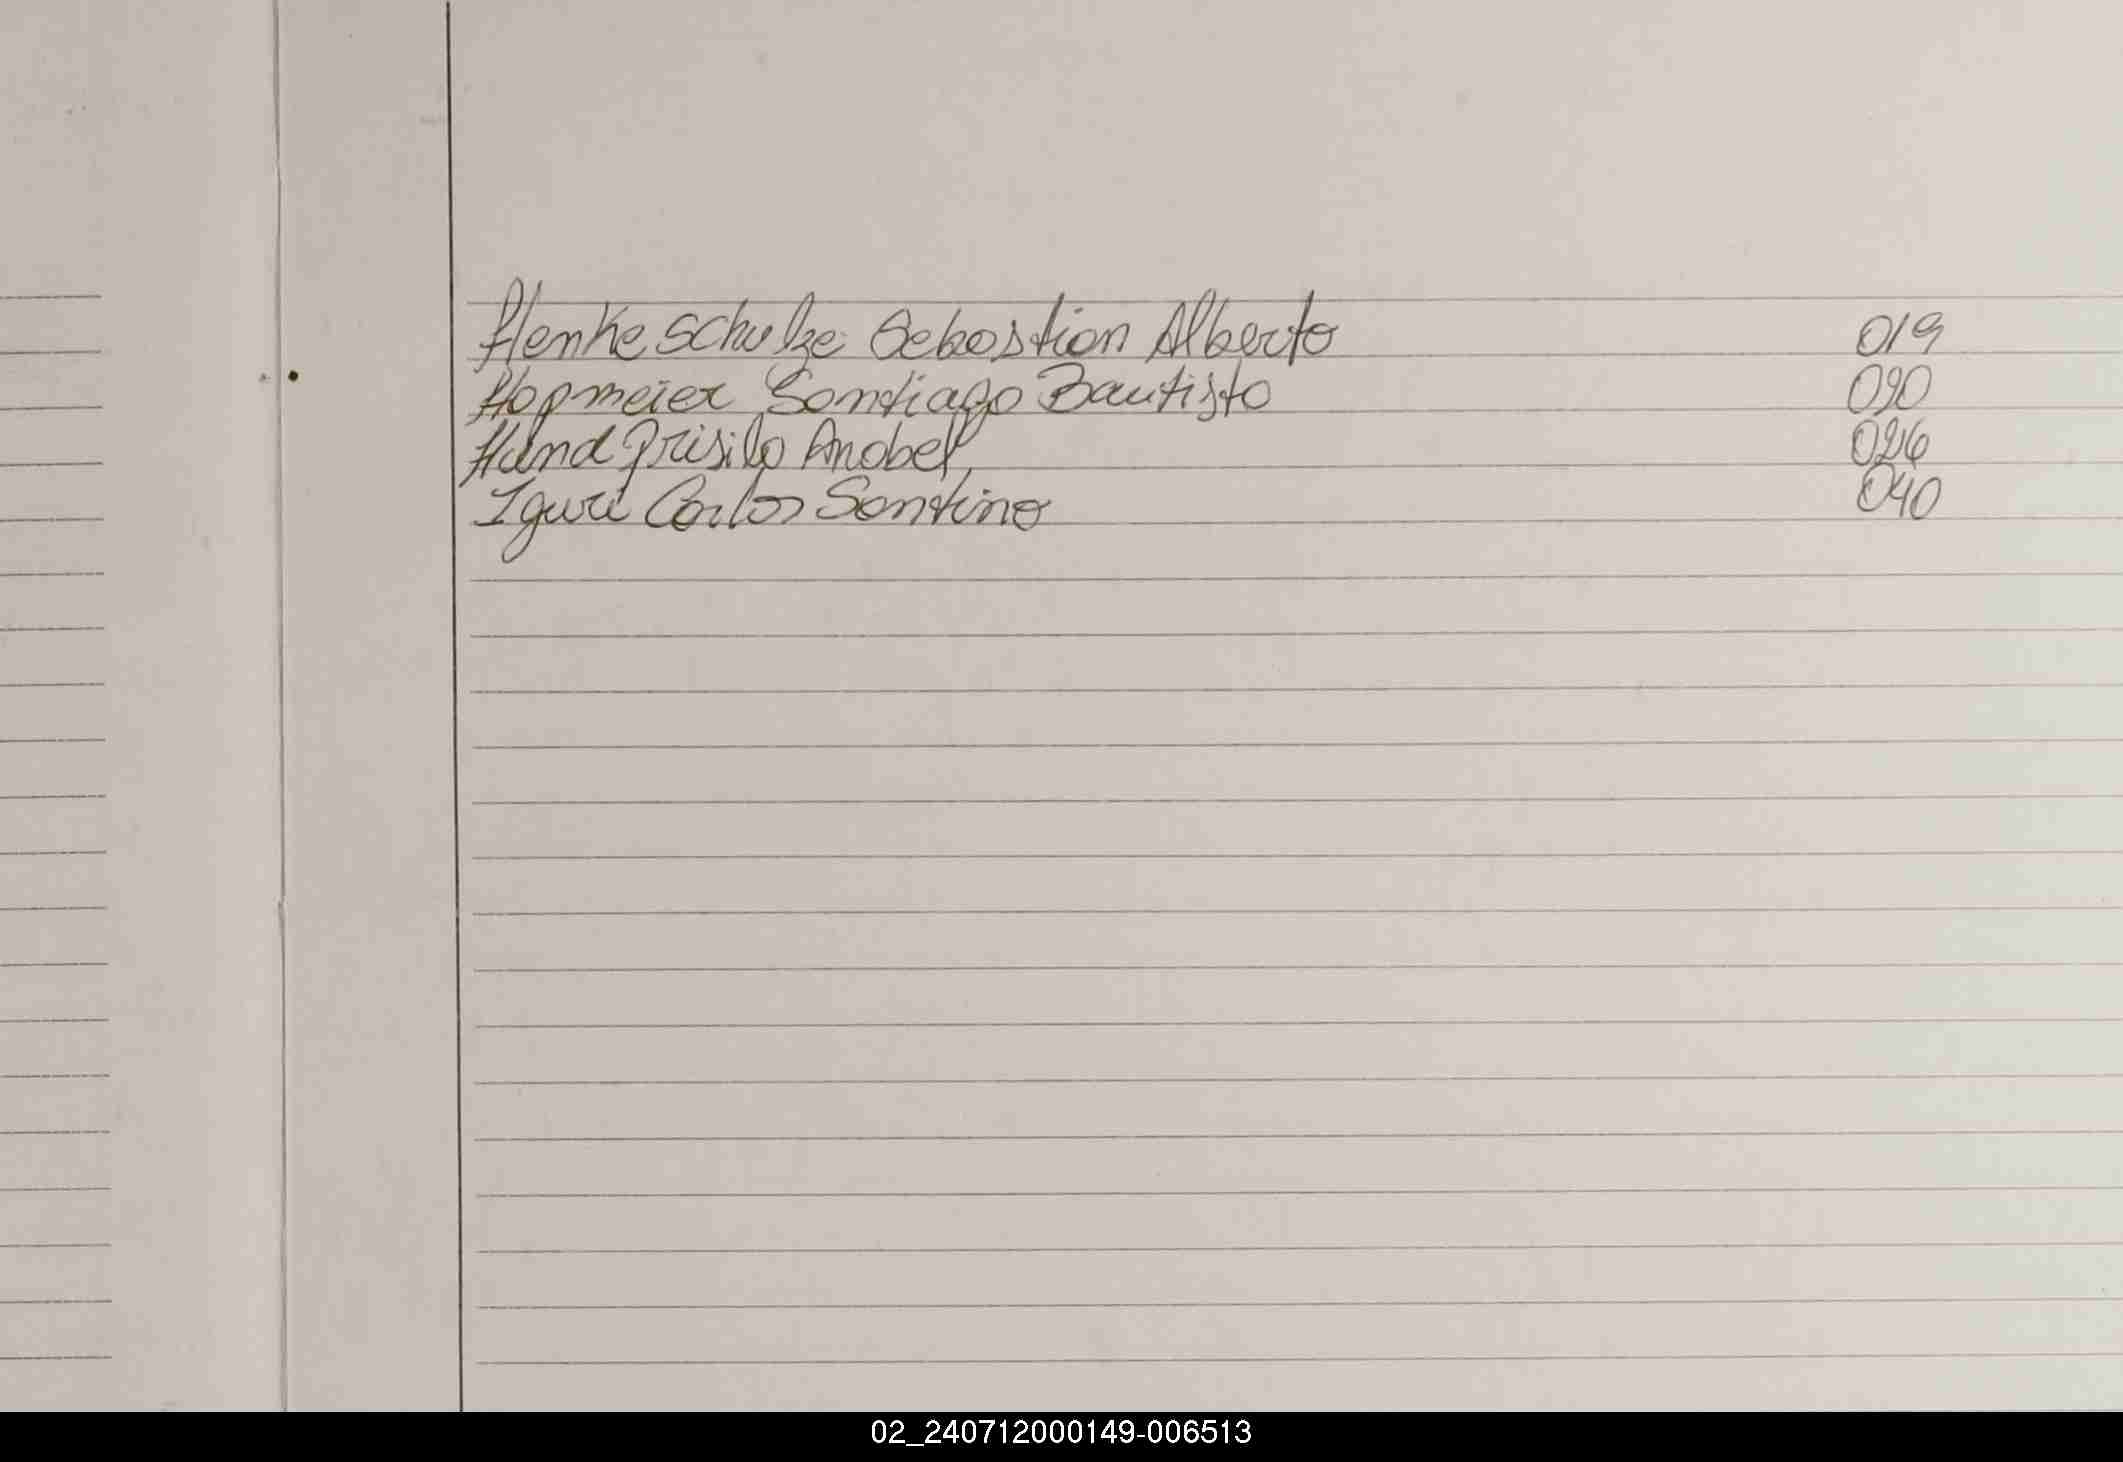 Henke Schulze Sebastian Alberto 019
Hopmeier Santiago Bautista 020
Hund Prisila Anabel 026
Iguri Carlos Santino 040
02_240712000149-006513